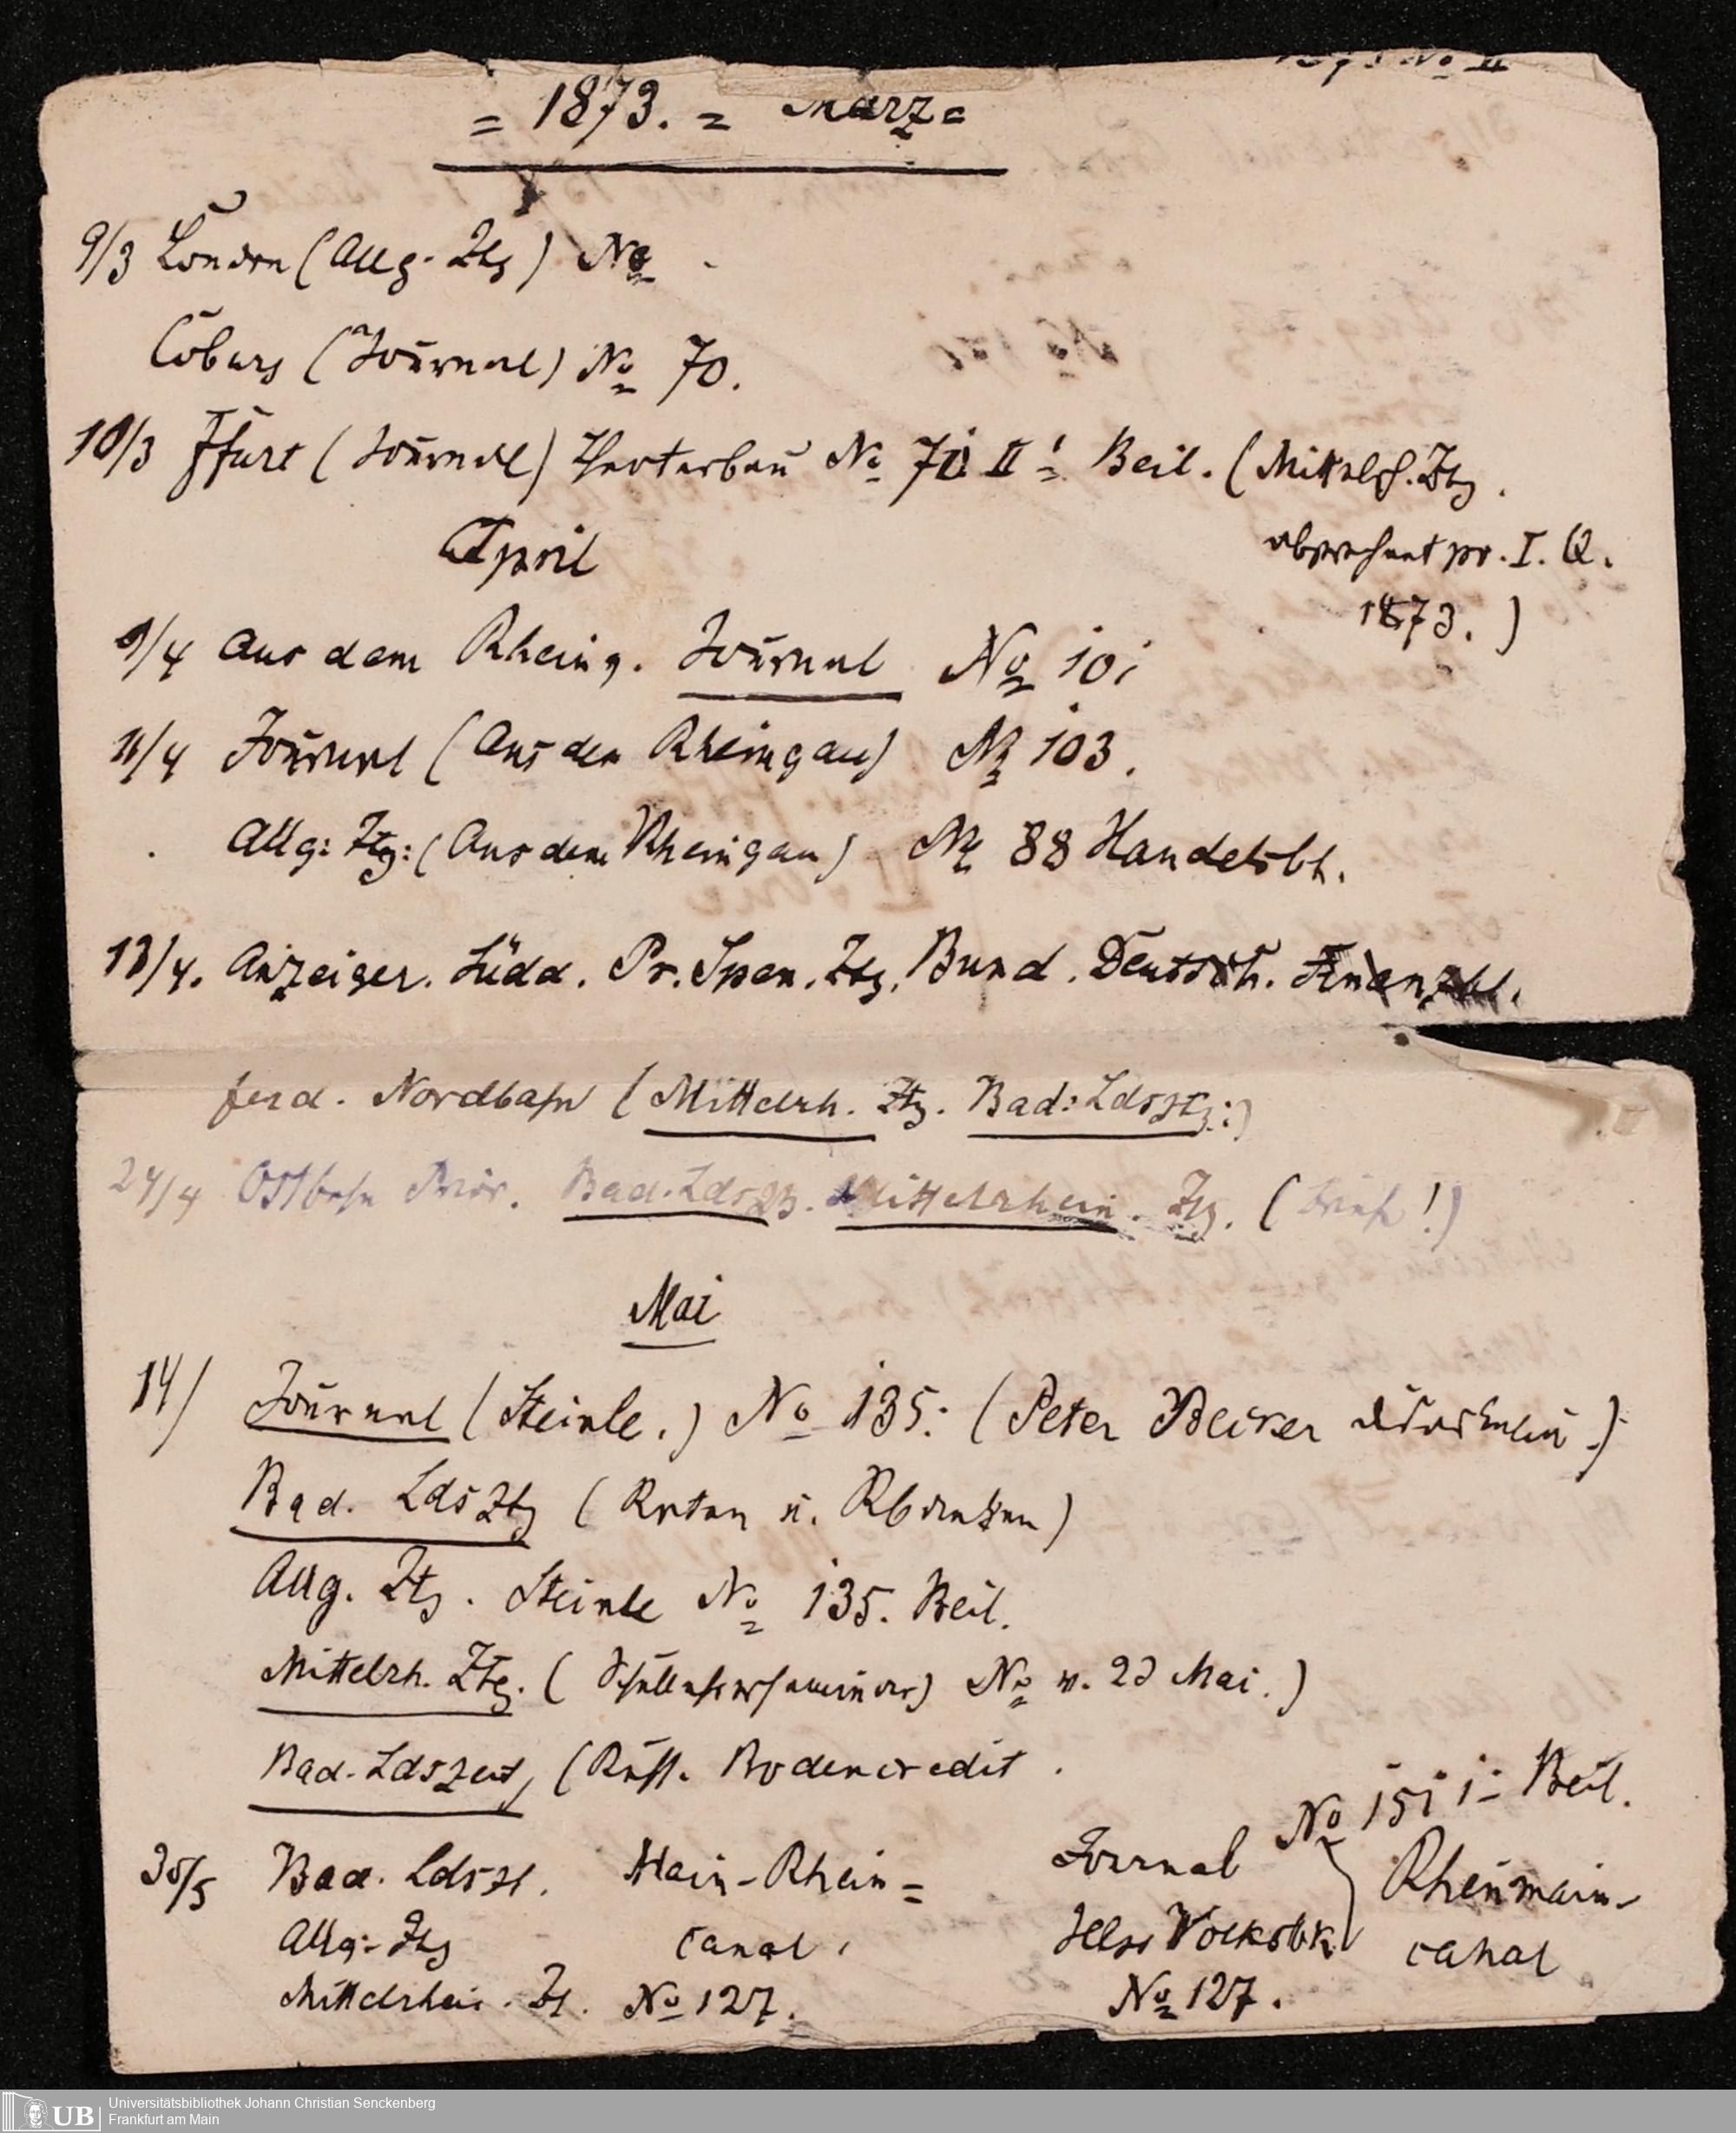 = 1873. = März =
9/3 London (Allg. Ztg) No
Coburg (Journal) No 70.
10/3 Ffurt (Journal) Theaterbau No 71 II! Beil. (Mittelrh. Ztg.
April
pr. I. Q.
1873.)
9/4 Aus dem Rheing. Journal No 101
11/4 Journal (Aus dem Rheingau) No 103.
Allg: Ztg: (Aus dem Rheingau) No 88 Handelsbl.
13/4. Anzeiger. Südd. Pr. Span. Ztg. Bund. Deutsch. Finanzbl.
ferd. Nordbahn (Mittelrh. Ztg. Bad: Ldsztg:)
24/4 Ostbahn Prior. Bad. Ldsztg. Mittelrhein. Ztg. (
Mai
14/ Journal (Steinle.) No 135: (Peter Becker
Bad. LdsZtg (Raten u.
Allg. Ztg. Steinle No 135. Beil.
Mittelrh. Ztg. ( No v. 23 Mai.)
Bad. Ldszeit, (Russ. Bodencredit.
No 151 1= Beil.
30/5 Bad. Ldszt. Main-Rhein= Journal Rheinmain-
Allg: Ztg canal. Volksbl. canal
Mittelrhein. Zt. No 127. No 127.
Universitätsbibliothek Johann Christian Senckenberg
Frankfurt am Main
UB